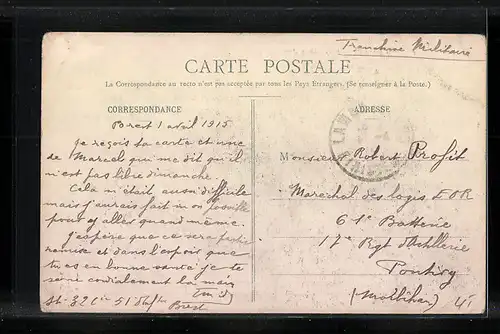 Franchise Militaire
CARTE POSTALE
La Correspondance au recto n'est pas acceptée par tous les Pays Étrangers. (Se renseigner à la Poste.)
CORRESPONDANCE
Brest 1 avril 1915
Je reçois ta carte et une
de Marcel qui me dit qu'il
n'est pas libre dimanche.
Cela n'était aussi difficile
mais j'aurais fait mon possible
pour y aller quand même.
J'espère que ce sera
remise et dans l'espoir que
tu es en bonne santé je te
serre cordialement la main
32 Cie 51
Brest
ADRESSE
Monsieur Robert Profit
Marechal des logis
61e Batterie
17e Rgt d'Artillerie
Pontivy
(Morbihan)